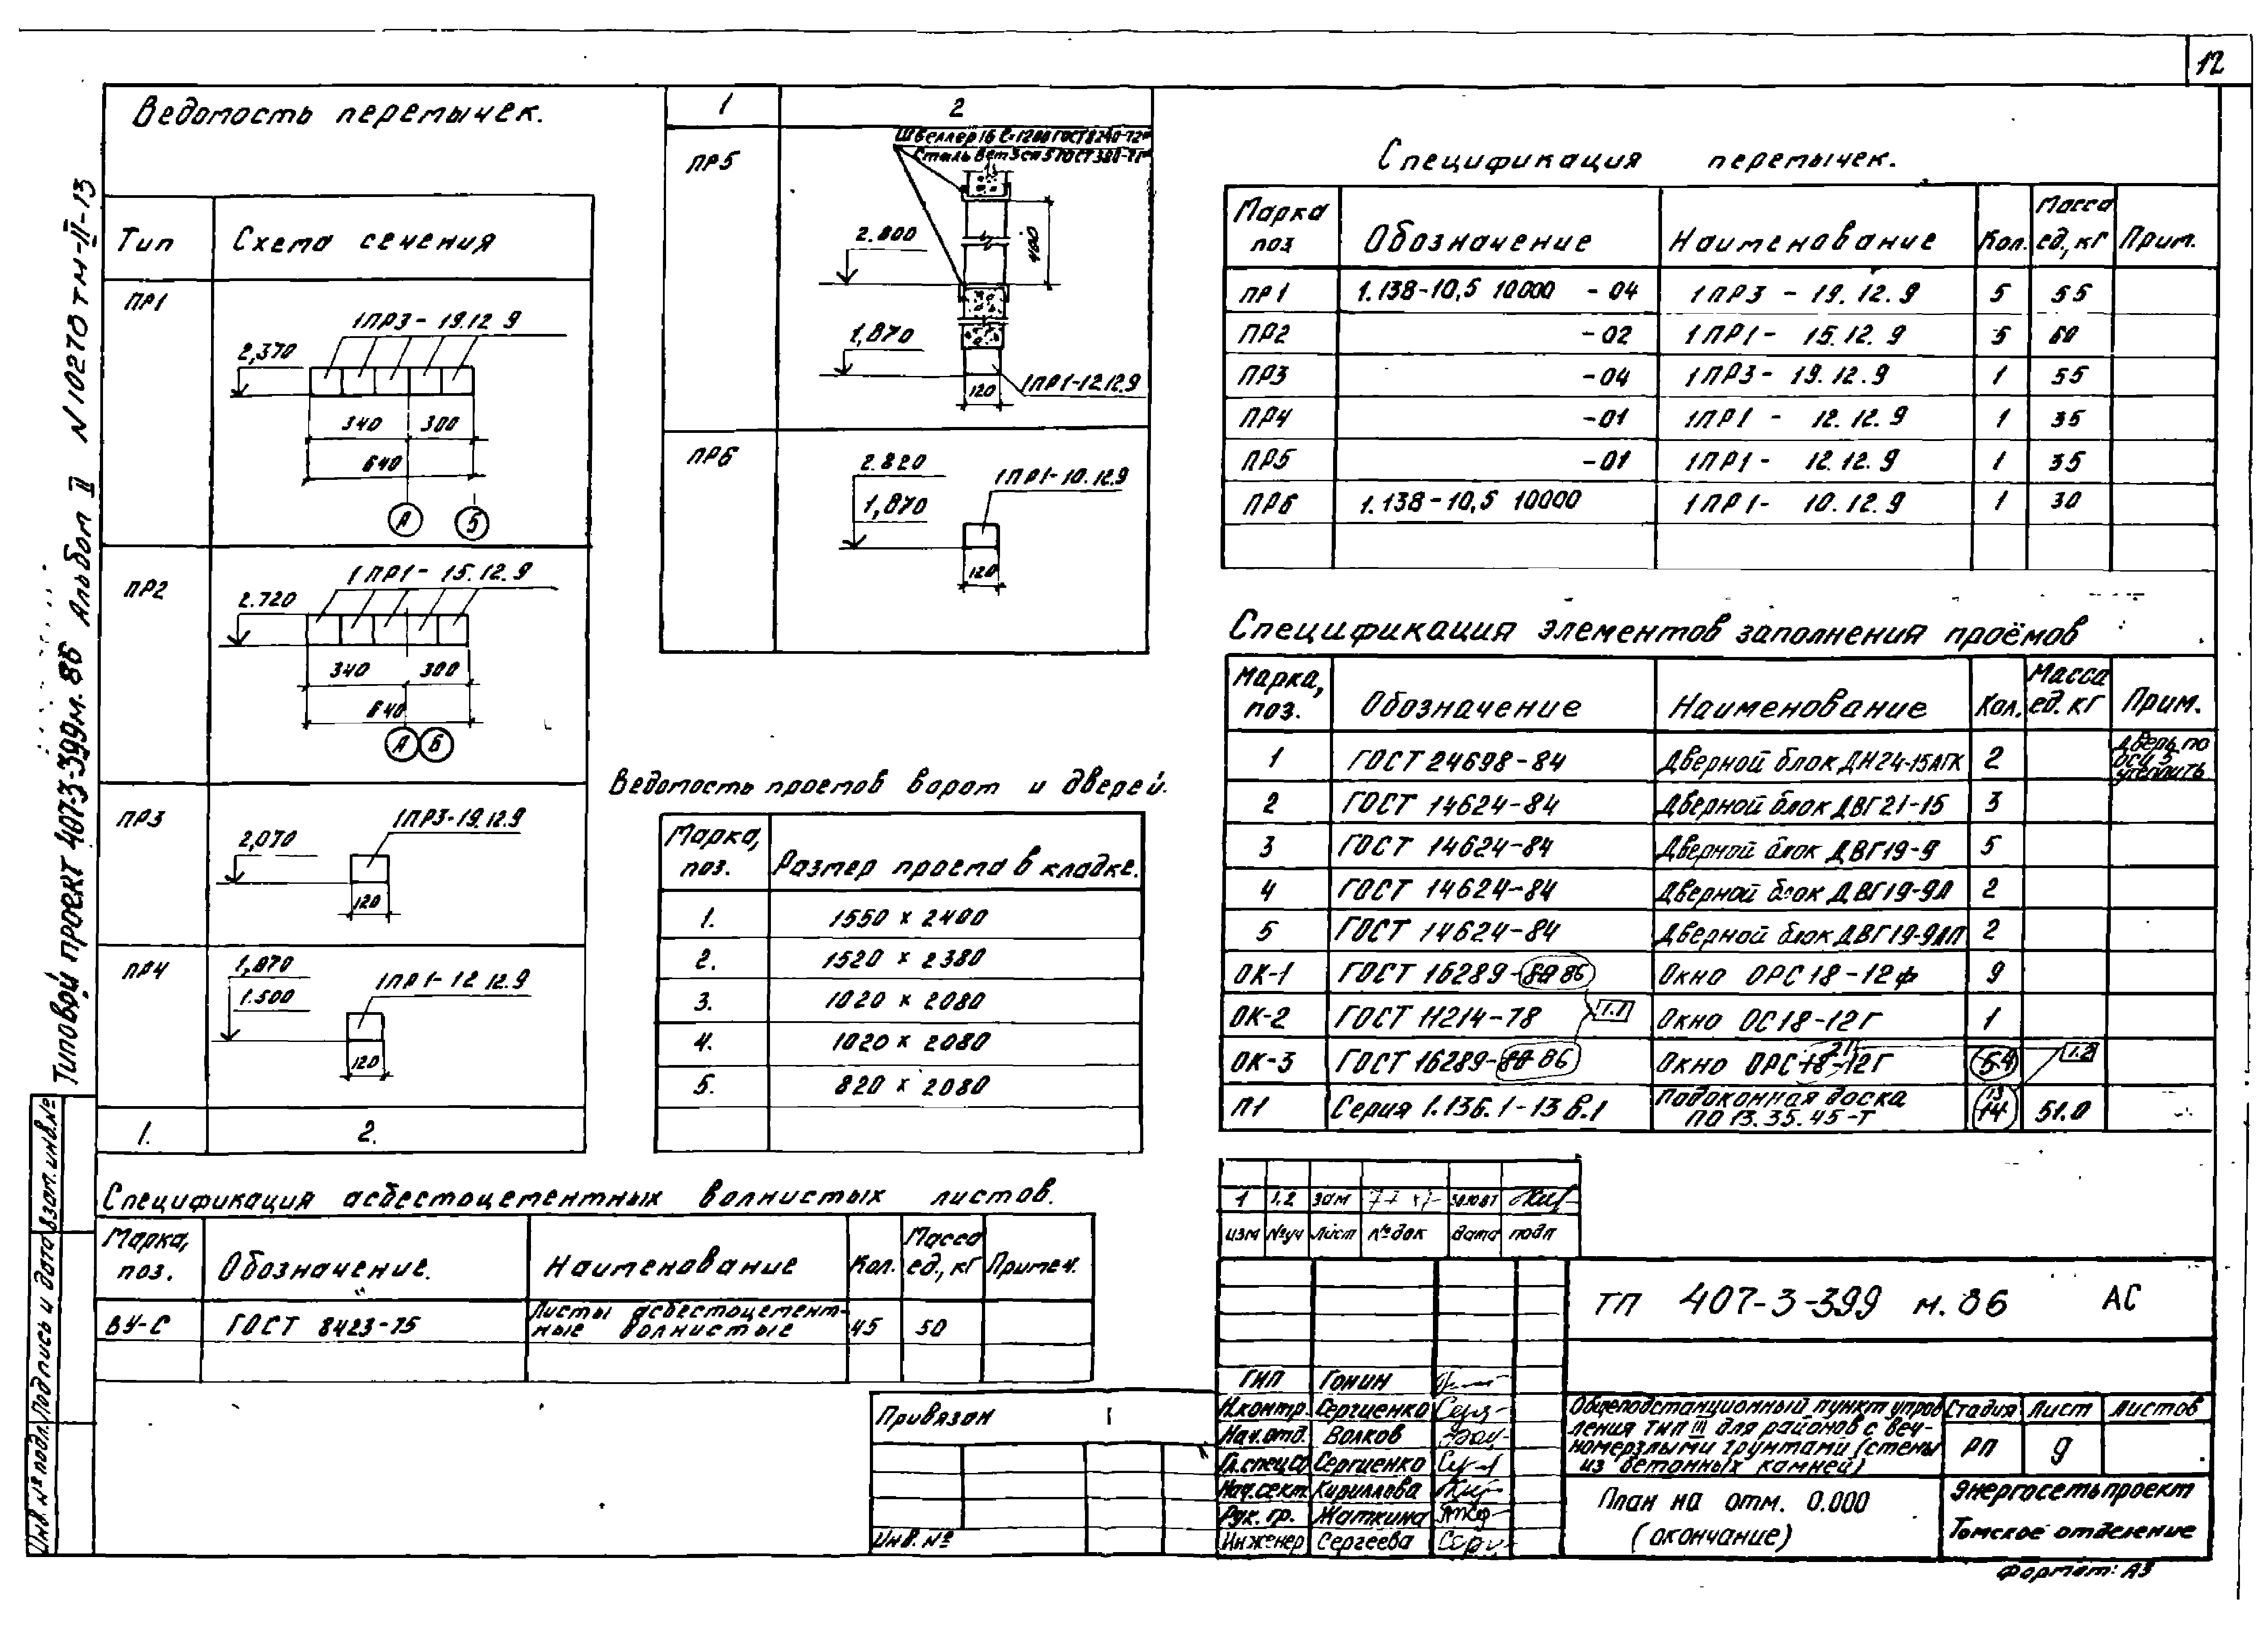 12
Типовой проект 407-3-399м.86 Альбом II N10270тм-II-13
Ведомость перемычек.
Тип Схема сечения
ПР1
1ПР3 - 19.12 9
2,370
340 300
640
А Б
ПР2
1ПР1 - 15.12.9
2.720
340 300
640
А Б
ПР3
1ПР3-19.12.9
2,070
120
ПР4
1,870
1.500
1ПР1-12 12.9
120
1. 2.
1 2
ПР5
Швеллер16 ℓ=1200 ГОСТ8240-72*
Сталь Вст3сп5 ГОСТ380-71*
2.800
400
1,870
1ПР1-12.12.9
120
ПР6
2.820
1,870
1ПР1-10.12.9
120
Ведомость проемов ворот и дверей.
Марка, поз. Размер проема в кладке.
1. 1550 x 2400
2. 1520 x 2380
3. 1020 x 2080
4. 1020 x 2080
5. 820 x 2080
Спецификация перемычек.
Марка поз Обозначение Наименование Кол. Масса ед., кг Прим.
ПР1 1.138-10,5 10000 -04 1ПР3 - 19.12.9 5 55
ПР2 -02 1ПР1- 15.12.9 5 60
ПР3 -04 1ПР3- 19.12.9 1 55
ПР4 -01 1ПР1 - 12.12.9 1 35
ПР5 -01 1ПР1- 12.12.9 1 35
ПР6 1.138-10,5 10000 1ПР1- 10.12.9 1 30
Спецификация элементов заполнения проёмов
Марка, поз. Обозначение Наименование Кол. Масса ед. кг Прим.
1 ГОСТ 24698-84 Дверной блок ДН24-15АГК 2 Дверь по оси 5 утеплить
2 ГОСТ 14624-84 Дверной блок ДВГ21-15 3
3 ГОСТ 14624-84 Дверной блок ДВГ19-9 5
4 ГОСТ 14624-84 Дверной блок ДВГ19-9Л 2
5 ГОСТ 14624-84 Дверной блок ДВГ19-9ЛП 2
ОК-1 ГОСТ 16289-80 86 Окно ОРС18-12ф 9
ОК-2 ГОСТ 11214-78 1.1 Окно ОС18-12Г 1
ОК-3 ГОСТ 16289-80 86 Окно ОРС18-12Г 21 5 4 1.2
П1 Серия 1.136.1-13 в.1 Подоконная доска ПО 13.35.45-Т 13 14 51.0
Спецификация асбестоцементных волнистых листов.
Марка, поз. Обозначение. Наименование Кол. Масса ед., кг Примеч.
ВУ-С ГОСТ 8423-75 Листы асбестоцементные волнистые 45 50
Привязан
Инв. №
1 1.2 зам
изм №уч Лист №док дата подп
ТП 407-3-399 м.86 АС
ГИП Гонин
Н.контр. Сергиенко
Нач.отд. Волков
Гл.спец.СО Сергиенко
Нач.сект. Кириллова
Рук. гр. Жаткина
Инженер Сергеева
Общеподстанционный пункт управ
ления тип III для районов с веч-
номерзлыми грунтами (стены
из бетонных камней)
Стадия Лист Листов
РП 9
План на отм. 0.000
(окончание)
Энергосетьпроект
Томское отделение
Формат: А3
Инв. № подл. Подпись и дата Взам. инв.№